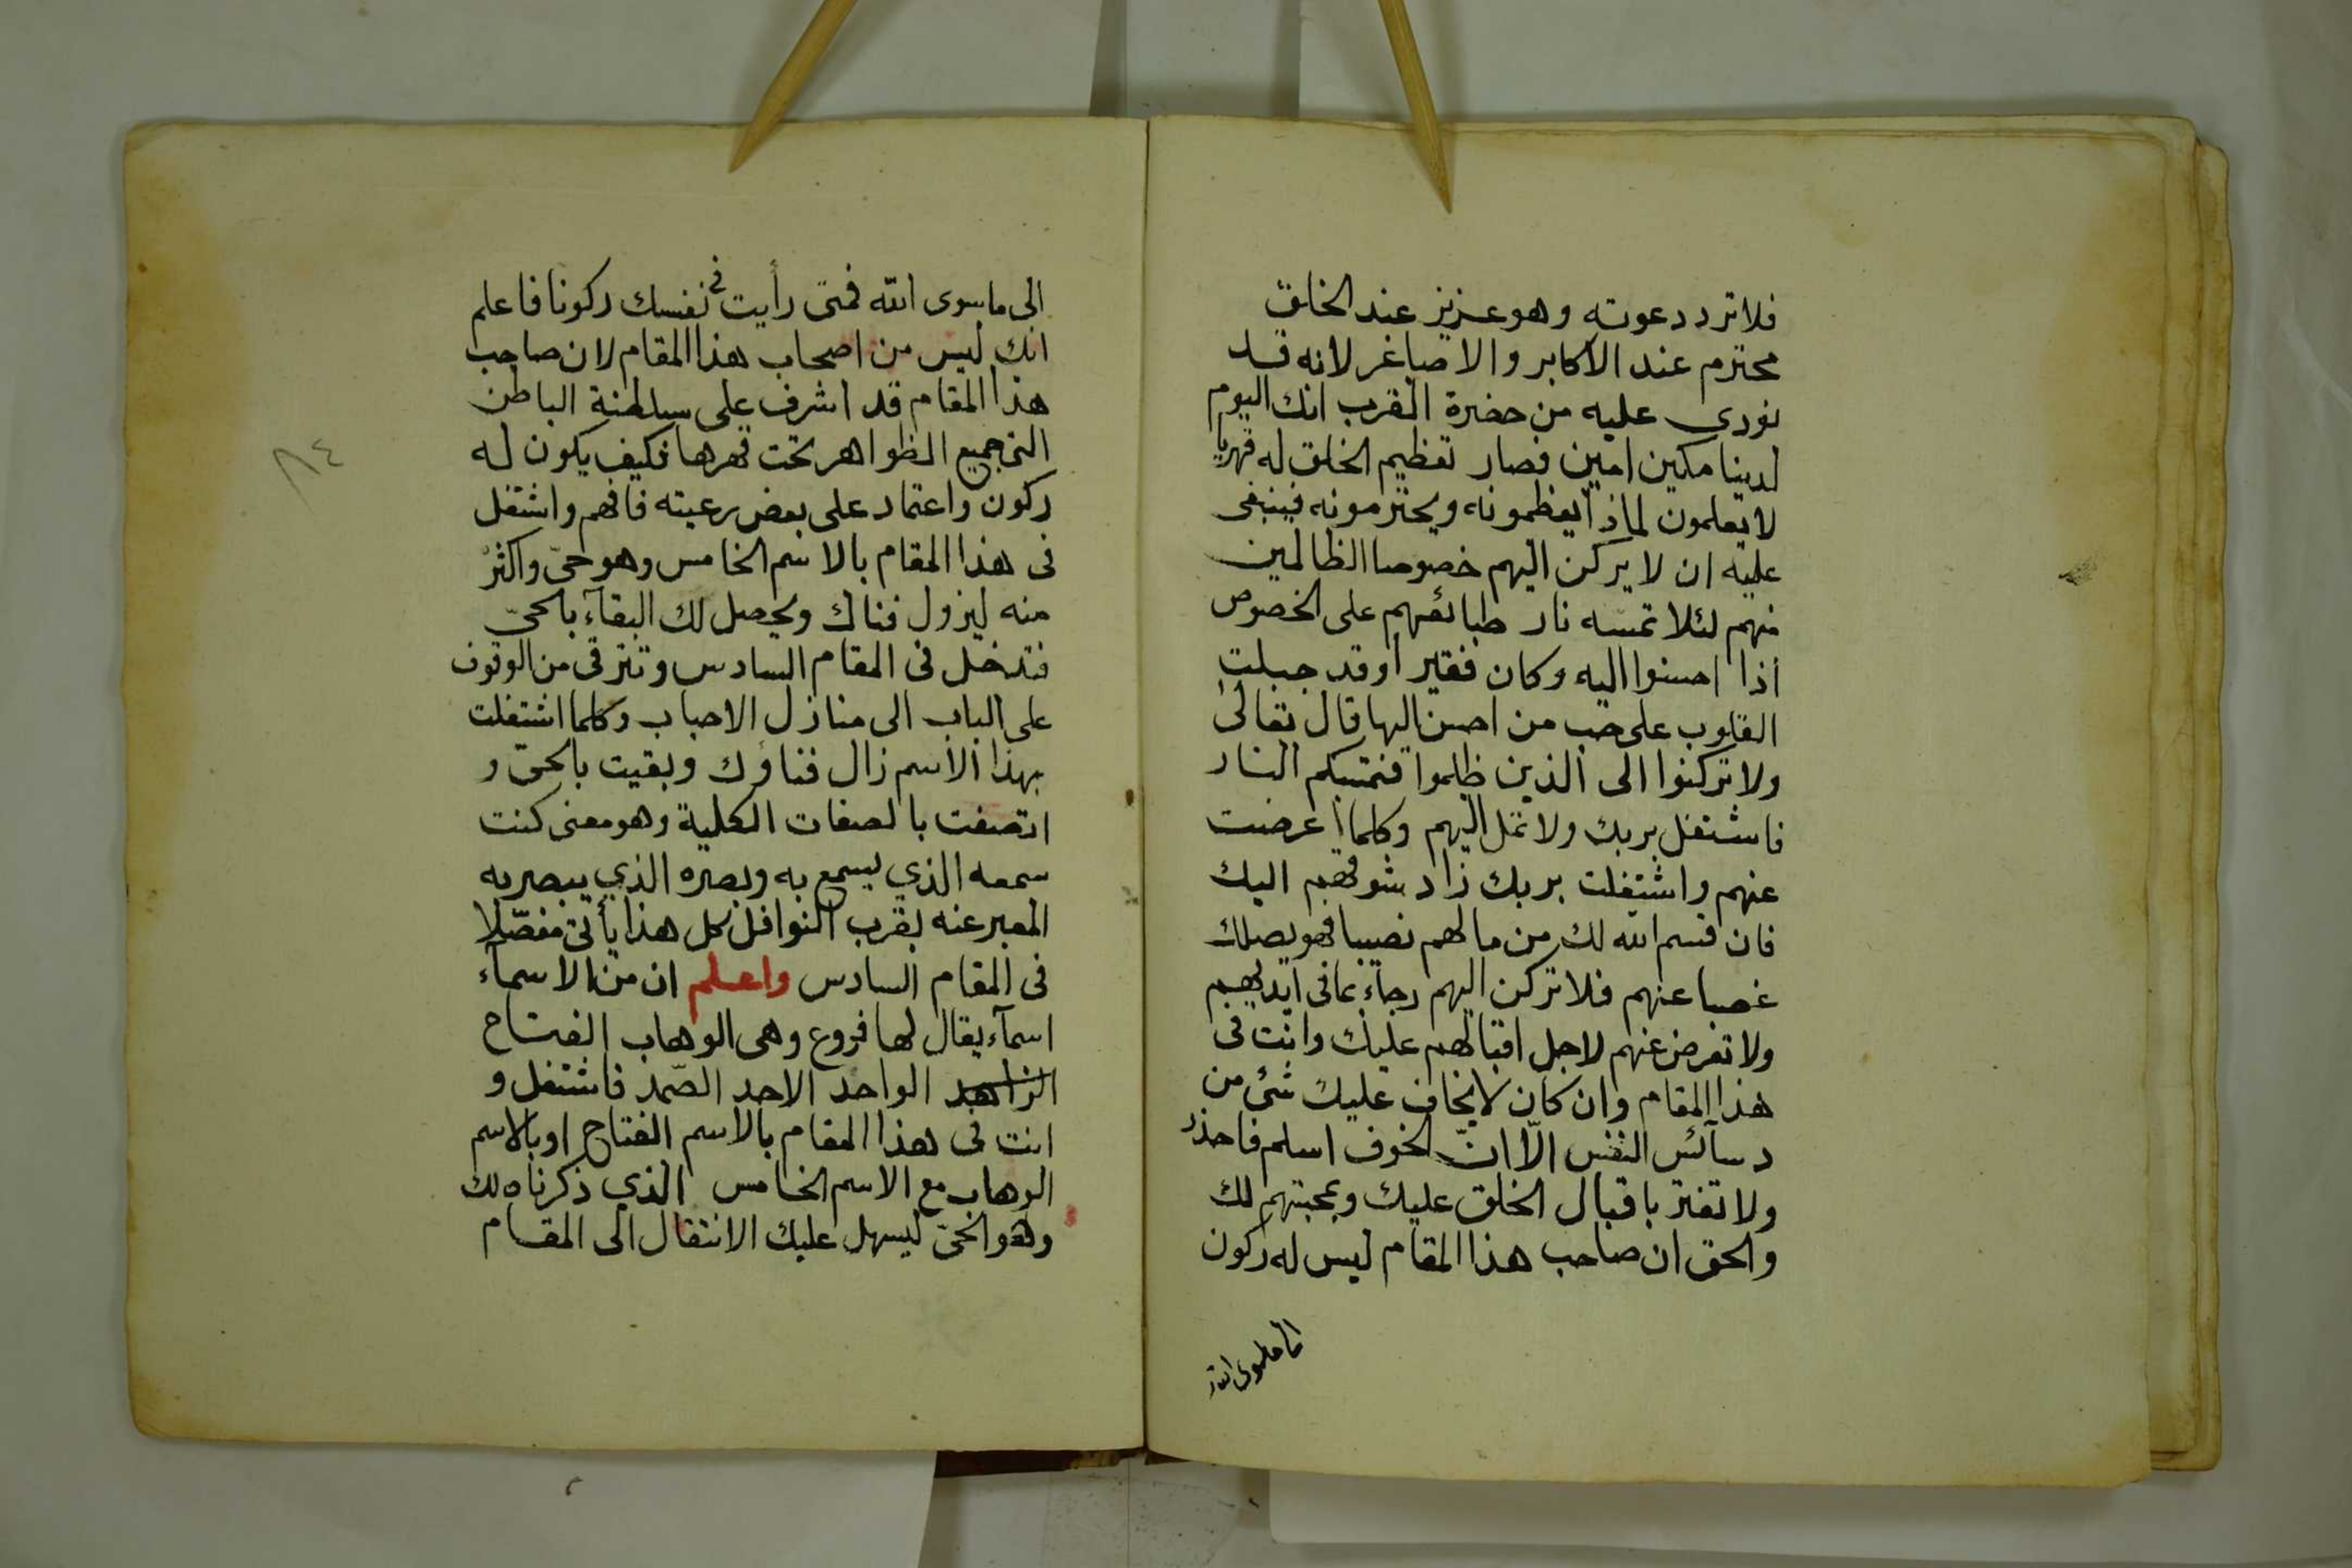 فلا ترد دعوته وهو عزيز عند الخلق
محترم عند الاكابر والاصاغر لانه قد
نودي عليه من حضرة القرب انك اليوم
لدينا مكين امين فصار تعظيم الخلق له قهريا
لا يعلمون لماذا يعظمونه ويحترمونه فينبغى
عليه ان لا يركن اليهم خصوصا الظالمين
منهم لئلا تمسه نار طبائعهم على الخصوص
اذا احسنوا اليه وكان فقيرا وقد جبلت
القلوب على حب من احسن اليها قال تعالى
ولا تركنوا الى الذين ظلموا فتمسكم النار
فاشتغل بربك ولا تمل اليهم وكلما اعرضت
عنهم واشتغلت بربك زاد شوقهم اليك
فان قسم الله لك من مالهم نصيبا فهو يصلك
غصبا عنهم فلا تركن اليهم رجاء بما فى ايديهم
ولا تعرض عنهم لاجل اقبالهم عليك وانت فى
هذا المقام وان كان لا يخاف عليك شئ من
دسآئس النفس الّا انّ الخوف اسلم فاحذر
ولا تغتر باقبال الخلق عليك وبمحبتهم لك
والحق ان صاحب هذا المقام ليس له ركون
الى ما سوى الله
الى ما سوى الله فمتى رأيت فى نفسك ركونا فاعلم
انك ليس من اصحاب هذا المقام لان صاحب
هذا المقام قد اشرف على سلطنة الباطن
التى جميع الظواهر تحت قهرها فكيف يكون له
ركون واعتماد على بعض رعيته فافهم واشتغل
فى هذا المقام بالاسم الخامس وهو حىّ واكثر
منه ليزول فناك ويحصل لك البقآء بالحىّ
فتدخل فى المقام السادس وتترقى من الوقوف
على الباب الى منازل الاحباب وكلما اشتغلت
بهذا الاسم زال فناؤك وبقيت بالحىّ و
اتصفت بالصفات الكلية وهو معنى كنت
سمعه الذي يسمع به وبصره الذي يبصر به
المعبر عنه بقرب النوافل كل هذا يأتى مفصّلا
فى المقام السادس واعلم ان من الاسمآء
اسمآء يقال لها فروع وهى الوهاب الفتاح
الزاهد الواحد الاحد الصّمد فاشتغل و
انت فى هذا المقام بالاسم الفتاح او بالاسم
الوهاب مع الاسم الخامس الذي ذكرناه لك
وهو الحىّ ليسهل عليك الانتقال الى المقام
٨٤